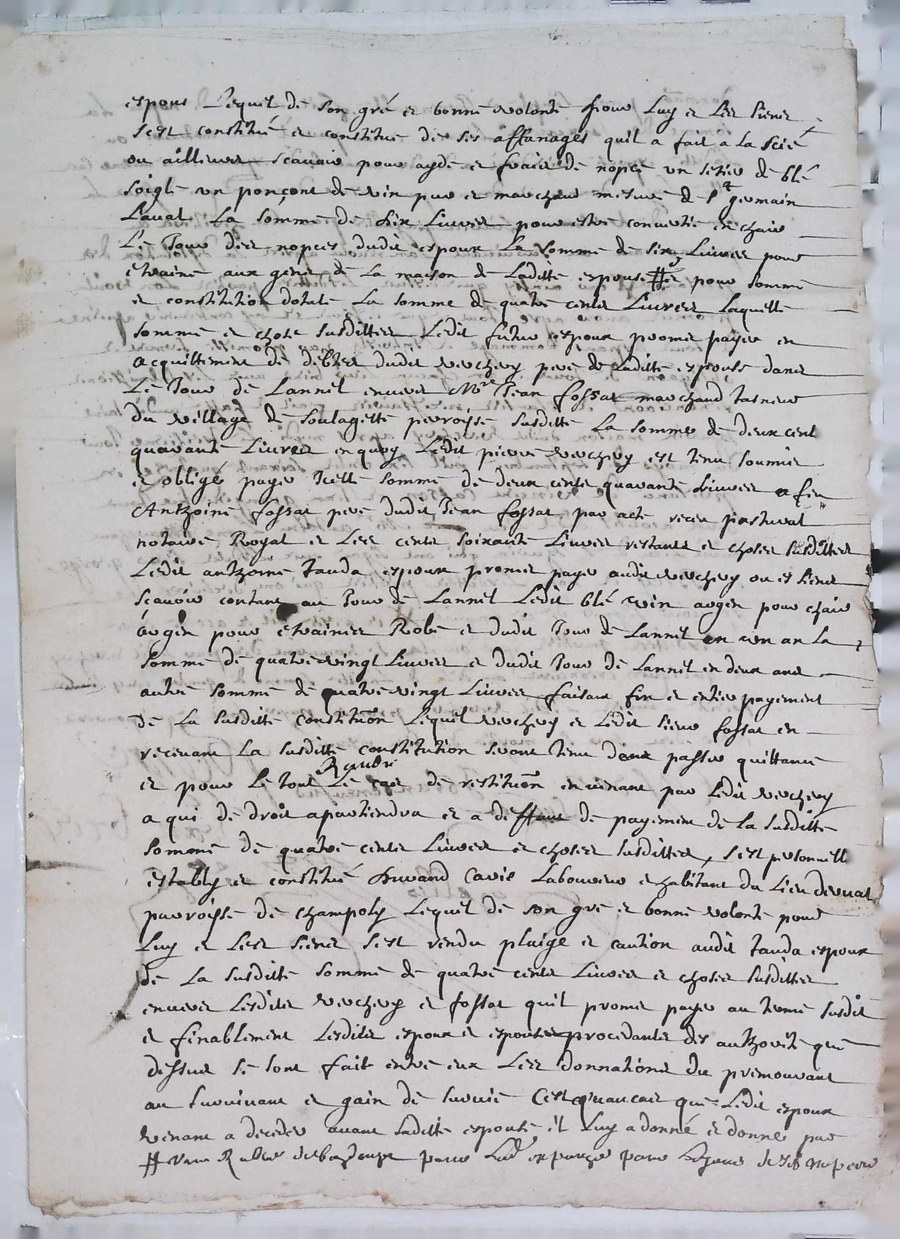 espoux Lequel de son gré et bonne volonté pour Luy et Les siens
s'est constitué et constitue de ses affanages quil a fait a la scie
ou ailleurs scavoir pour ayde et fraix de nopce un setier de blé
soigle un ponçont de vin pur et marchand mesure de st germain
Laval La somme de dix Livres pour estre convertie en chair
Le Jour des nopces dudit espoux La somme de six Livres pour
etraine aux gens de La maison de Laditte espouse # et pour somme
et constitution dotale La somme de quatre cents Livres Laquelle
somme et chose susdittes Ledit futur espoux promet payer en
acquittement de debtes dudit verchery pere de Laditte espouse dans
Le Jour de Lannel envers Mre Jean fossat marchand tasneur
du village de soulagette parroisse susditte La somme de deux cent
quarante Livres en quoy Ledit pierre verchery est tenu soumis
et obligé payer Icelle somme de deux cents quarante Livres a feu
Anthoine fossat pere dudit Jean fossat par acte receu pastural
notaire Royal et Les cents soixante Livres restants et choses susdittes
Ledit anthoine Tauda espoux promet payer audit verchery ou es siens
scavoir contant au Jour de Lannel Ledit blé vin argen pour chair
argen pour etraines Robe et dudit Jour de Lannel en un an La
somme de quatrevingt Livres et dudit Jour de Lannel en deux ans
autre somme de quatrevingt Livres faisant fin et entier payement
de La susditte constituon Lequel verchery et Ledit sieur fossat en
recevant La susditte constitution seront tenu passer quittance
et pour Le tout Rendre Le cas de restituon envenant par Ledit verchery
a qui de droit apartiendra et a deffaut de payement de la susditte
somme de quatre cents Livres et choses susdittes, s'est personnell
estably et constitué Durand Cavié Laboureur et habitant du Lieu
parroisse de champoly Lequel de son gré et bonne volonté pour
Luy et Les siens s'est rendu plaige et caution audit Tauda espoux
de La susditte somme de quatre cents Livres et choses susdittes
envers Lesdits verchery et fossat quil promet payer au terme susdit
et finablement Lesdits espoux et espouse procedants des authorité que
dessus se sont fait entre eux Les donnations du premourant
au survivant et gain de survie C'est quaucas que Ledit espoux
venant a deceder avant Laditte espouse il Luy a donné et donne par
# une Robe pour Lad espouse pour